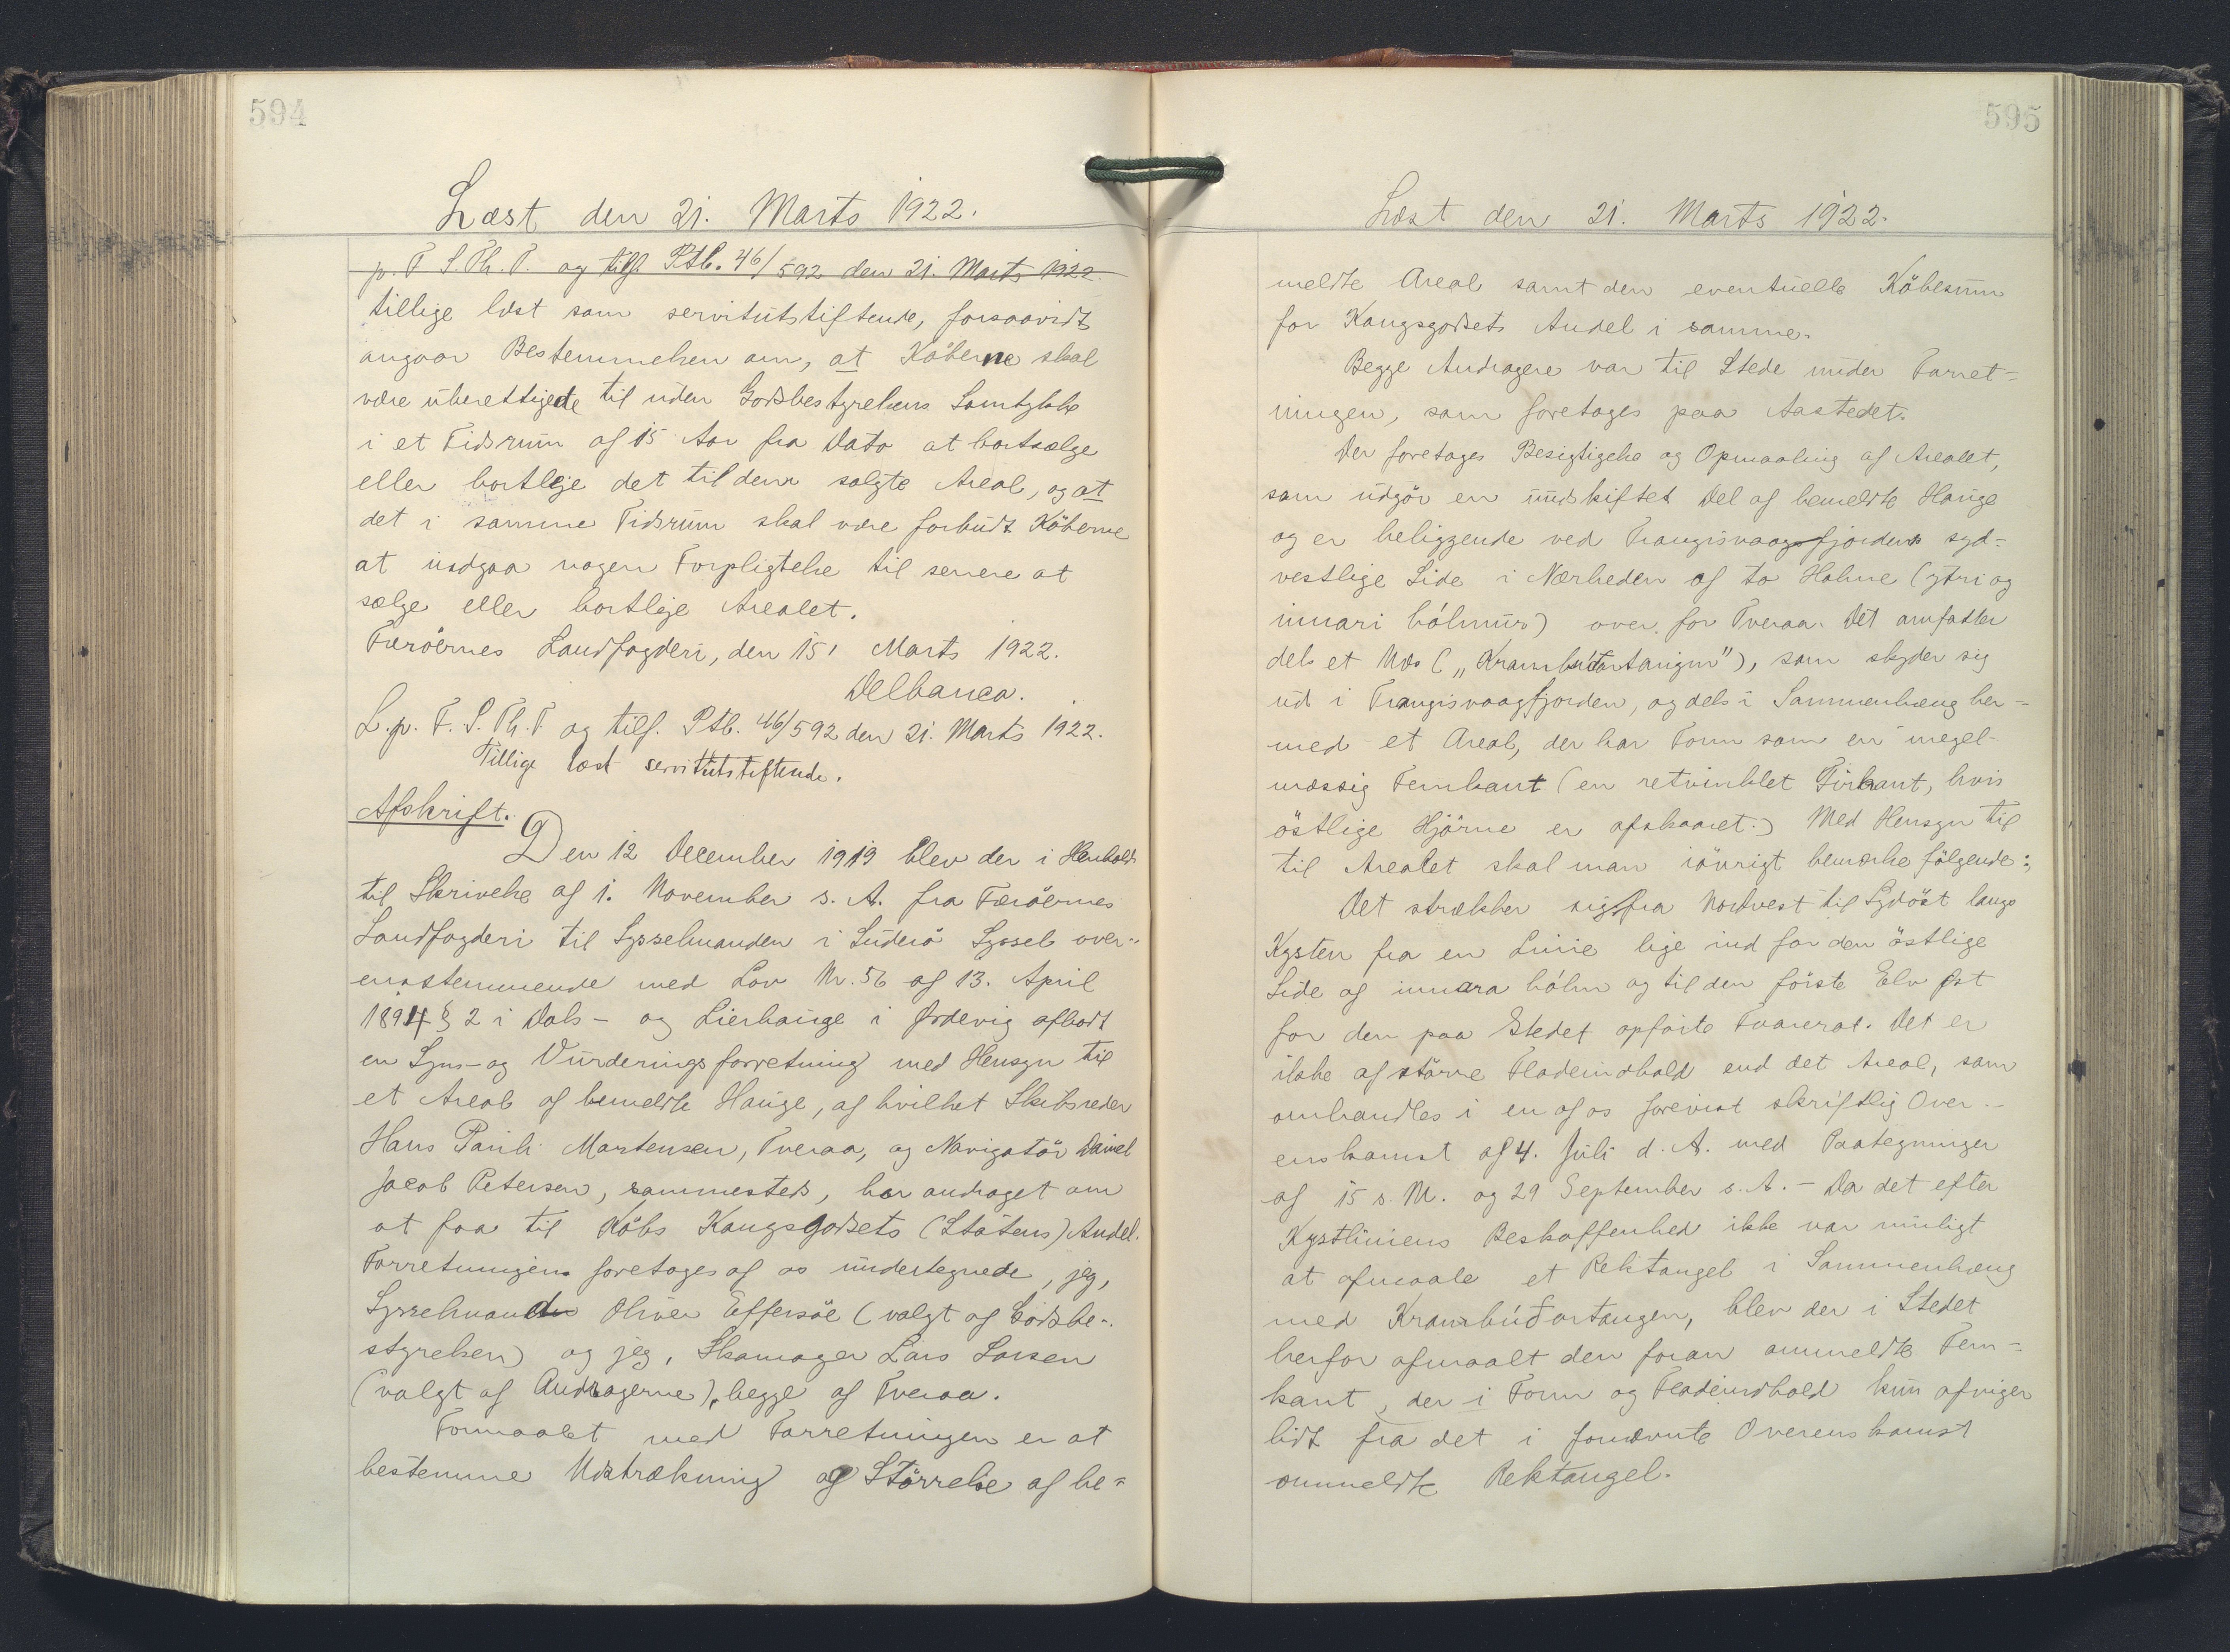 594
Læst den 21. Marts 1922.
p. T S. Th. T. og tilf. Ptb. 46/592 den 21. Marts 1922.
tillige læst som servitutstiftende, forsaavidt
angaar Bestemmelsen om, at Köberne skal
være uberettigede til uden Godsbestyrelsens Samtykke
i et Tidsrum af 15 Aar fra Dato at bortsælge
eller bortleje det til dem solgte Areal, og at
det i samme Tidsrum skal være forbudt Köberne
at indgaa nogen Forpligtelse til senere at
sælge eller bortleje Arealet.
Færöernes Landfogderi, den 15. Marts 1922.
Delbanco.
L. p. F. S. Th. T og tilf. Ptb. 46/592 den 21. Marts 1922.
Tillige læst servitutstiftende.
Afskrift.
Den 12 December 1919 blev der i Henhold
til Skrivelse af 1. November s. A. fra Færöernes
Landfogderi til Sysselmanden i Suderö Syssel over-
ensstemmende med Lov Nr. 56 af 13. April
1894 § 2 i Dals- og Lierhauge i Ørdevig afholdt
en Syns- og Vurderingsforretning med Hensyn til
et Areal af bemeldte Hauge, af hvilket Skibsreder
Hans Pauli Mortensen, Tveraa, og Navigatör Daniel
Jacob Petersen, sammesteds, har andraget om
at faa til Köbs Kongsgodsets (Statens) Andel.
Forretningen foretages af os undertegnede, jeg,
Sysselmand Oliver Effersöe (valgt af Godsbe-
styrelsen) og jeg, Skomager Lars Larsen
(valgt af Andragerne), begge af Tveraa.
Formaalet med Forretningen er at
bestemme Udstrækning og Störrelse af be-
595
Læst den 21. Marts 1922.
meldte Areal samt den eventuelle Köbesum
for Kongsgodsets Andel i samme.
Begge Andragere var til Stede under Forret-
ningen, som foretages paa Aastedet.
Der foretages Besigtigelse og Opmaaling af Arealet,
som udgör en uudskiftet Del af bemeldte Hauge
og er beliggende ved Trangisvaagsfjordens syd-
vestlige Side i Nærheden af to Holme (ytri og
innari hólmur) over for Tveraa. Det omfatter
dels et Næs ("Krambúðartangin"), som skyder sig
ud i Trangisvaagfjorden, og dels i Sammenhæng her-
med et Areal, der har Form som en uregel-
mæssig Femkant (en retvinklet Firkant, hvis
östlige Hjörne er afskaaret.) Med Hensyn til
til Arealet skal man iövrigt bemærke fölgende:
Det strækker sig fra Nordvest til Sydöst langs
Kysten fra en Linie lige ind for den östlige
Side af innara hólm og til den förste Elv Øst
for den paa Stedet opförte Tvarerat. Det er
ikke af större Fladeindhold end det Areal, som
omhandles i en af os forevist skriftlig Over-
enskomst af 4. Juli d. A. med Paategninger
af 15 s. M. og 29 September s. A. – Da det efter
Kystliniens Beskaffenhed ikke var muligt
at afmaale et Rektangel i Sammenhæng
med Krambúðartangen, blev der i Stedet
herfor afmaalt den foran ommeldte Fem-
kant, der i Form og Fladeindhold kun afviger
lidt fra det i fornævnte Overenskomst
ommeldte Rektangel.